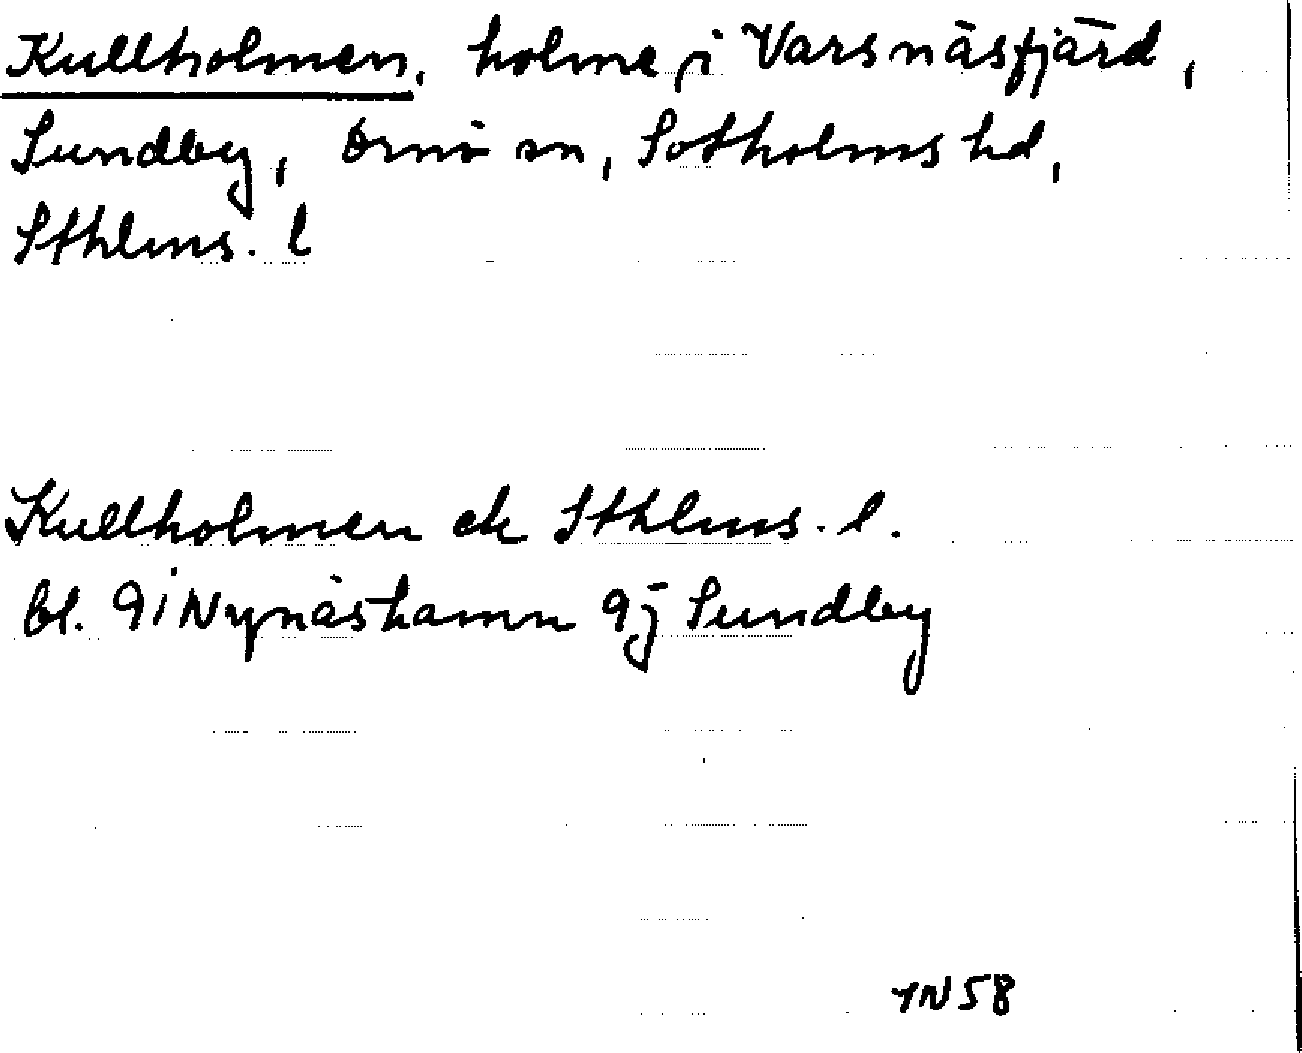 Kullholmen, holme, i Varsnäsfjärd,
Sundby, Ornö sn, Sotholms hd,
Sthlms. l
Kullholmen ek Sthlms. l.
bl. 9i Nynäshamn 9j Sundby
YN58